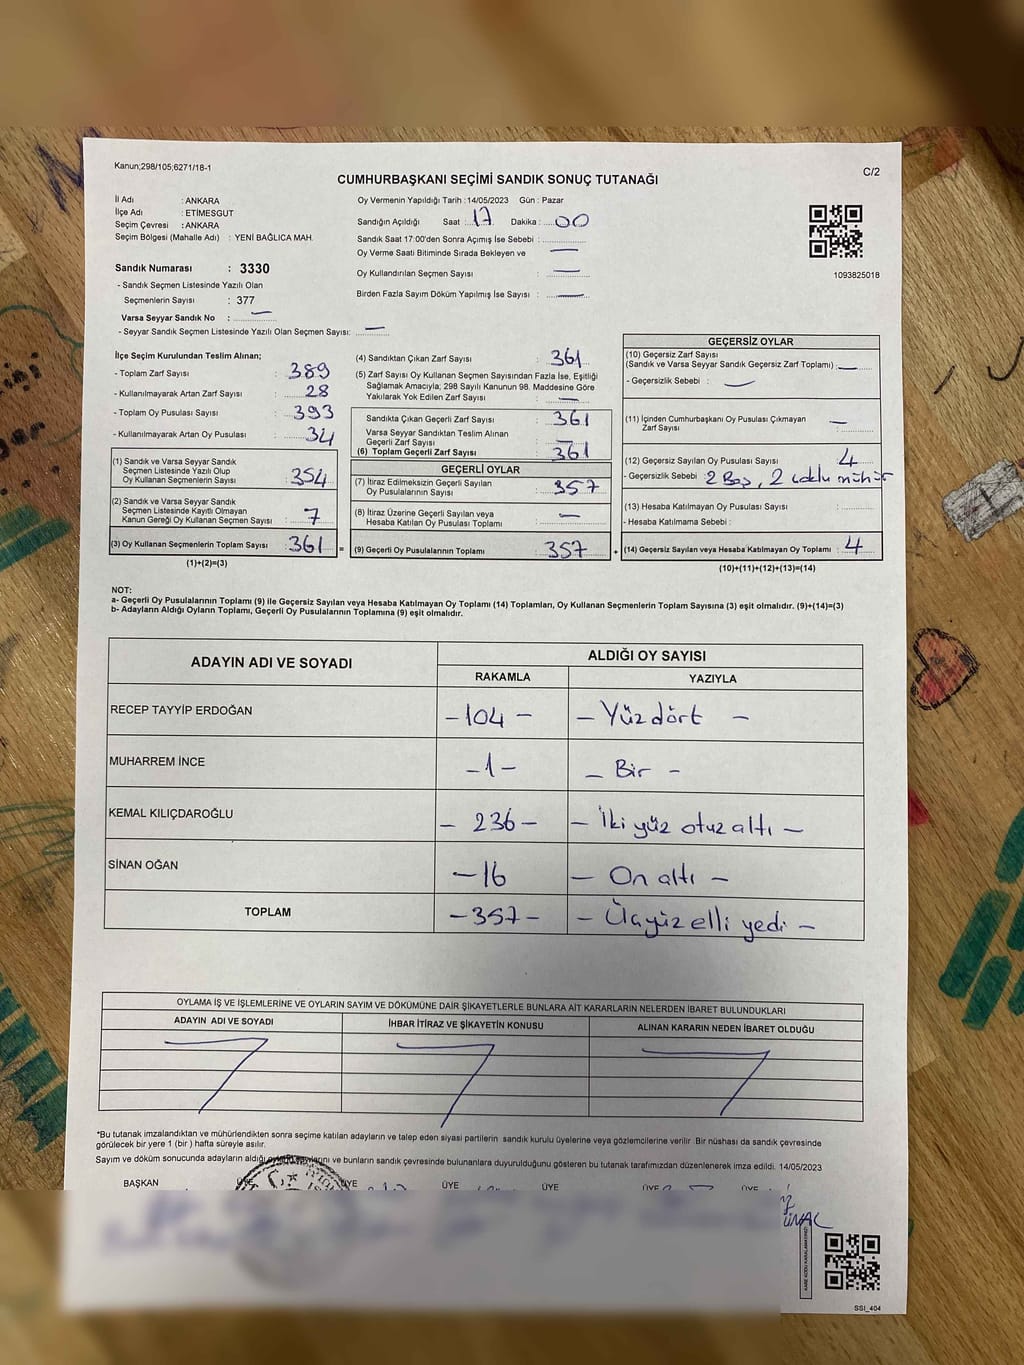 Kanun;298/105;6271/18-1
C/2
CUMHURBAŞKANI SEÇİMİ SANDIK SONUÇ TUTANAĞI
İl Adı : ANKARA
İlçe Adı : ETİMESGUT
Seçim Çevresi : ANKARA
Seçim Bölgesi (Mahalle Adı) : YENİ BAĞLICA MAH.
Oy Vermenin Yapıldığı Tarih :14/05/2023 Gün : Pazar
Sandığın Açıldığı Saat : 17 Dakika : 00
Sandık Saat 17:00'den Sonra Açımış İse Sebebi :
Oy Verme Saati Bitiminde Sırada Bekleyen ve —
Oy Kullandırılan Seçmen Sayısı : —
Birden Fazla Sayım Döküm Yapılmış İse Sayısı : —
1093825018
Sandık Numarası : 3330
- Sandık Seçmen Listesinde Yazılı Olan
Seçmenlerin Sayısı : 377
Varsa Seyyar Sandık No : —
- Seyyar Sandık Seçmen Listesinde Yazılı Olan Seçmen Sayısı: —
İlçe Seçim Kurulundan Teslim Alınan;
- Toplam Zarf Sayısı : 389
- Kullanılmayarak Artan Zarf Sayısı : 28
- Toplam Oy Pusulası Sayısı : 393
- Kullanılmayarak Artan Oy Pusulası : 34
(1) Sandık ve Varsa Seyyar Sandık
Seçmen Listesinde Yazılı Olup
Oy Kullanan Seçmenlerin Sayısı : 354
(2) Sandık ve Varsa Seyyar Sandık
Seçmen Listesinde Kayıtlı Olmayan
Kanun Gereği Oy Kullanan Seçmen Sayısı : 7
(3) Oy Kullanan Seçmenlerin Toplam Sayısı : 361
(1)+(2)=(3)
(4) Sandıktan Çıkan Zarf Sayısı : 361
(5) Zarf Sayısı Oy Kullanan Seçmen Sayısından Fazla İse, Eşitliği
Sağlamak Amacıyla; 298 Sayılı Kanunun 98. Maddesine Göre
Yakılarak Yok Edilen Zarf Sayısı : —
Sandıkta Çıkan Geçerli Zarf Sayısı : 361
Varsa Seyyar Sandıktan Teslim Alınan
Geçerli Zarf Sayısı : —
(6) Toplam Geçerli Zarf Sayısı : 361
GEÇERLİ OYLAR
(7) İtiraz Edilmeksizin Geçerli Sayılan
Oy Pusulalarının Sayısı : 357
(8) İtiraz Üzerine Geçerli Sayılan veya
Hesaba Katılan Oy Pusulası Toplamı : —
= (9) Geçerli Oy Pusulalarının Toplamı : 357
GEÇERSİZ OYLAR
(10) Geçersiz Zarf Sayısı
(Sandık ve Varsa Seyyar Sandık Geçersiz Zarf Toplamı) : —
- Geçersizlik Sebebi : —
(11) İçinden Cumhurbaşkanı Oy Pusulası Çıkmayan
Zarf Sayısı : —
(12) Geçersiz Sayılan Oy Pusulası Sayısı : 4
- Geçersizlik Sebebi : 2 Boş, 2 çoklu mühür
(13) Hesaba Katılmayan Oy Pusulası Sayısı :
- Hesaba Katılmama Sebebi :
+ (14) Geçersiz Sayılan veya Hesaba Katılmayan Oy Toplamı : 4
(10)+(11)+(12)+(13)=(14)
NOT:
a- Geçerli Oy Pusulalarının Toplamı (9) ile Geçersiz Sayılan veya Hesaba Katılmayan Oy Toplamı (14) Toplamları, Oy Kullanan Seçmenlerin Toplam Sayısına (3) eşit olmalıdır. (9)+(14)=(3)
b- Adayların Aldığı Oyların Toplamı, Geçerli Oy Pusulalarının Toplamına (9) eşit olmalıdır.
ADAYIN ADI VE SOYADI ALDIĞI OY SAYISI
RAKAMLA YAZIYLA
RECEP TAYYİP ERDOĞAN -104- - Yüz dört -
MUHARREM İNCE -1- - Bir -
KEMAL KILIÇDAROĞLU - 236 - - İki yüz otuz altı -
SİNAN OĞAN -16 - On altı -
TOPLAM -357- - Üçyüz elli yedi -
OYLAMA İŞ VE İŞLEMLERİNE VE OYLARIN SAYIM VE DÖKÜMÜNE DAİR ŞİKAYETLERLE BUNLARA AİT KARARLARIN NELERDEN İBARET BULUNDUKLARI
ADAYIN ADI VE SOYADI İHBAR İTİRAZ VE ŞİKAYETİN KONUSU ALINAN KARARIN NEDEN İBARET OLDUĞU
*Bu tutanak imzalandıktan ve mühürlendikten sonra seçime katılan adayların ve talep eden siyasi partilerin sandık kurulu üyelerine veya gözlemcilerine verilir. Bir nüshası da sandık çevresinde
görülecek bir yere 1 (bir ) hafta süreyle asılır.
Sayım ve döküm sonucunda adayların aldığı ve bunların sandık çevresinde bulunanlara duyurulduğunu gösteren bu tutanak tarafımızdan düzenlenerek imza edildi. 14/05/2023
BAŞKAN ÜYE ÜYE ÜYE ÜYE ÜYE ÜYE
SSİ_404